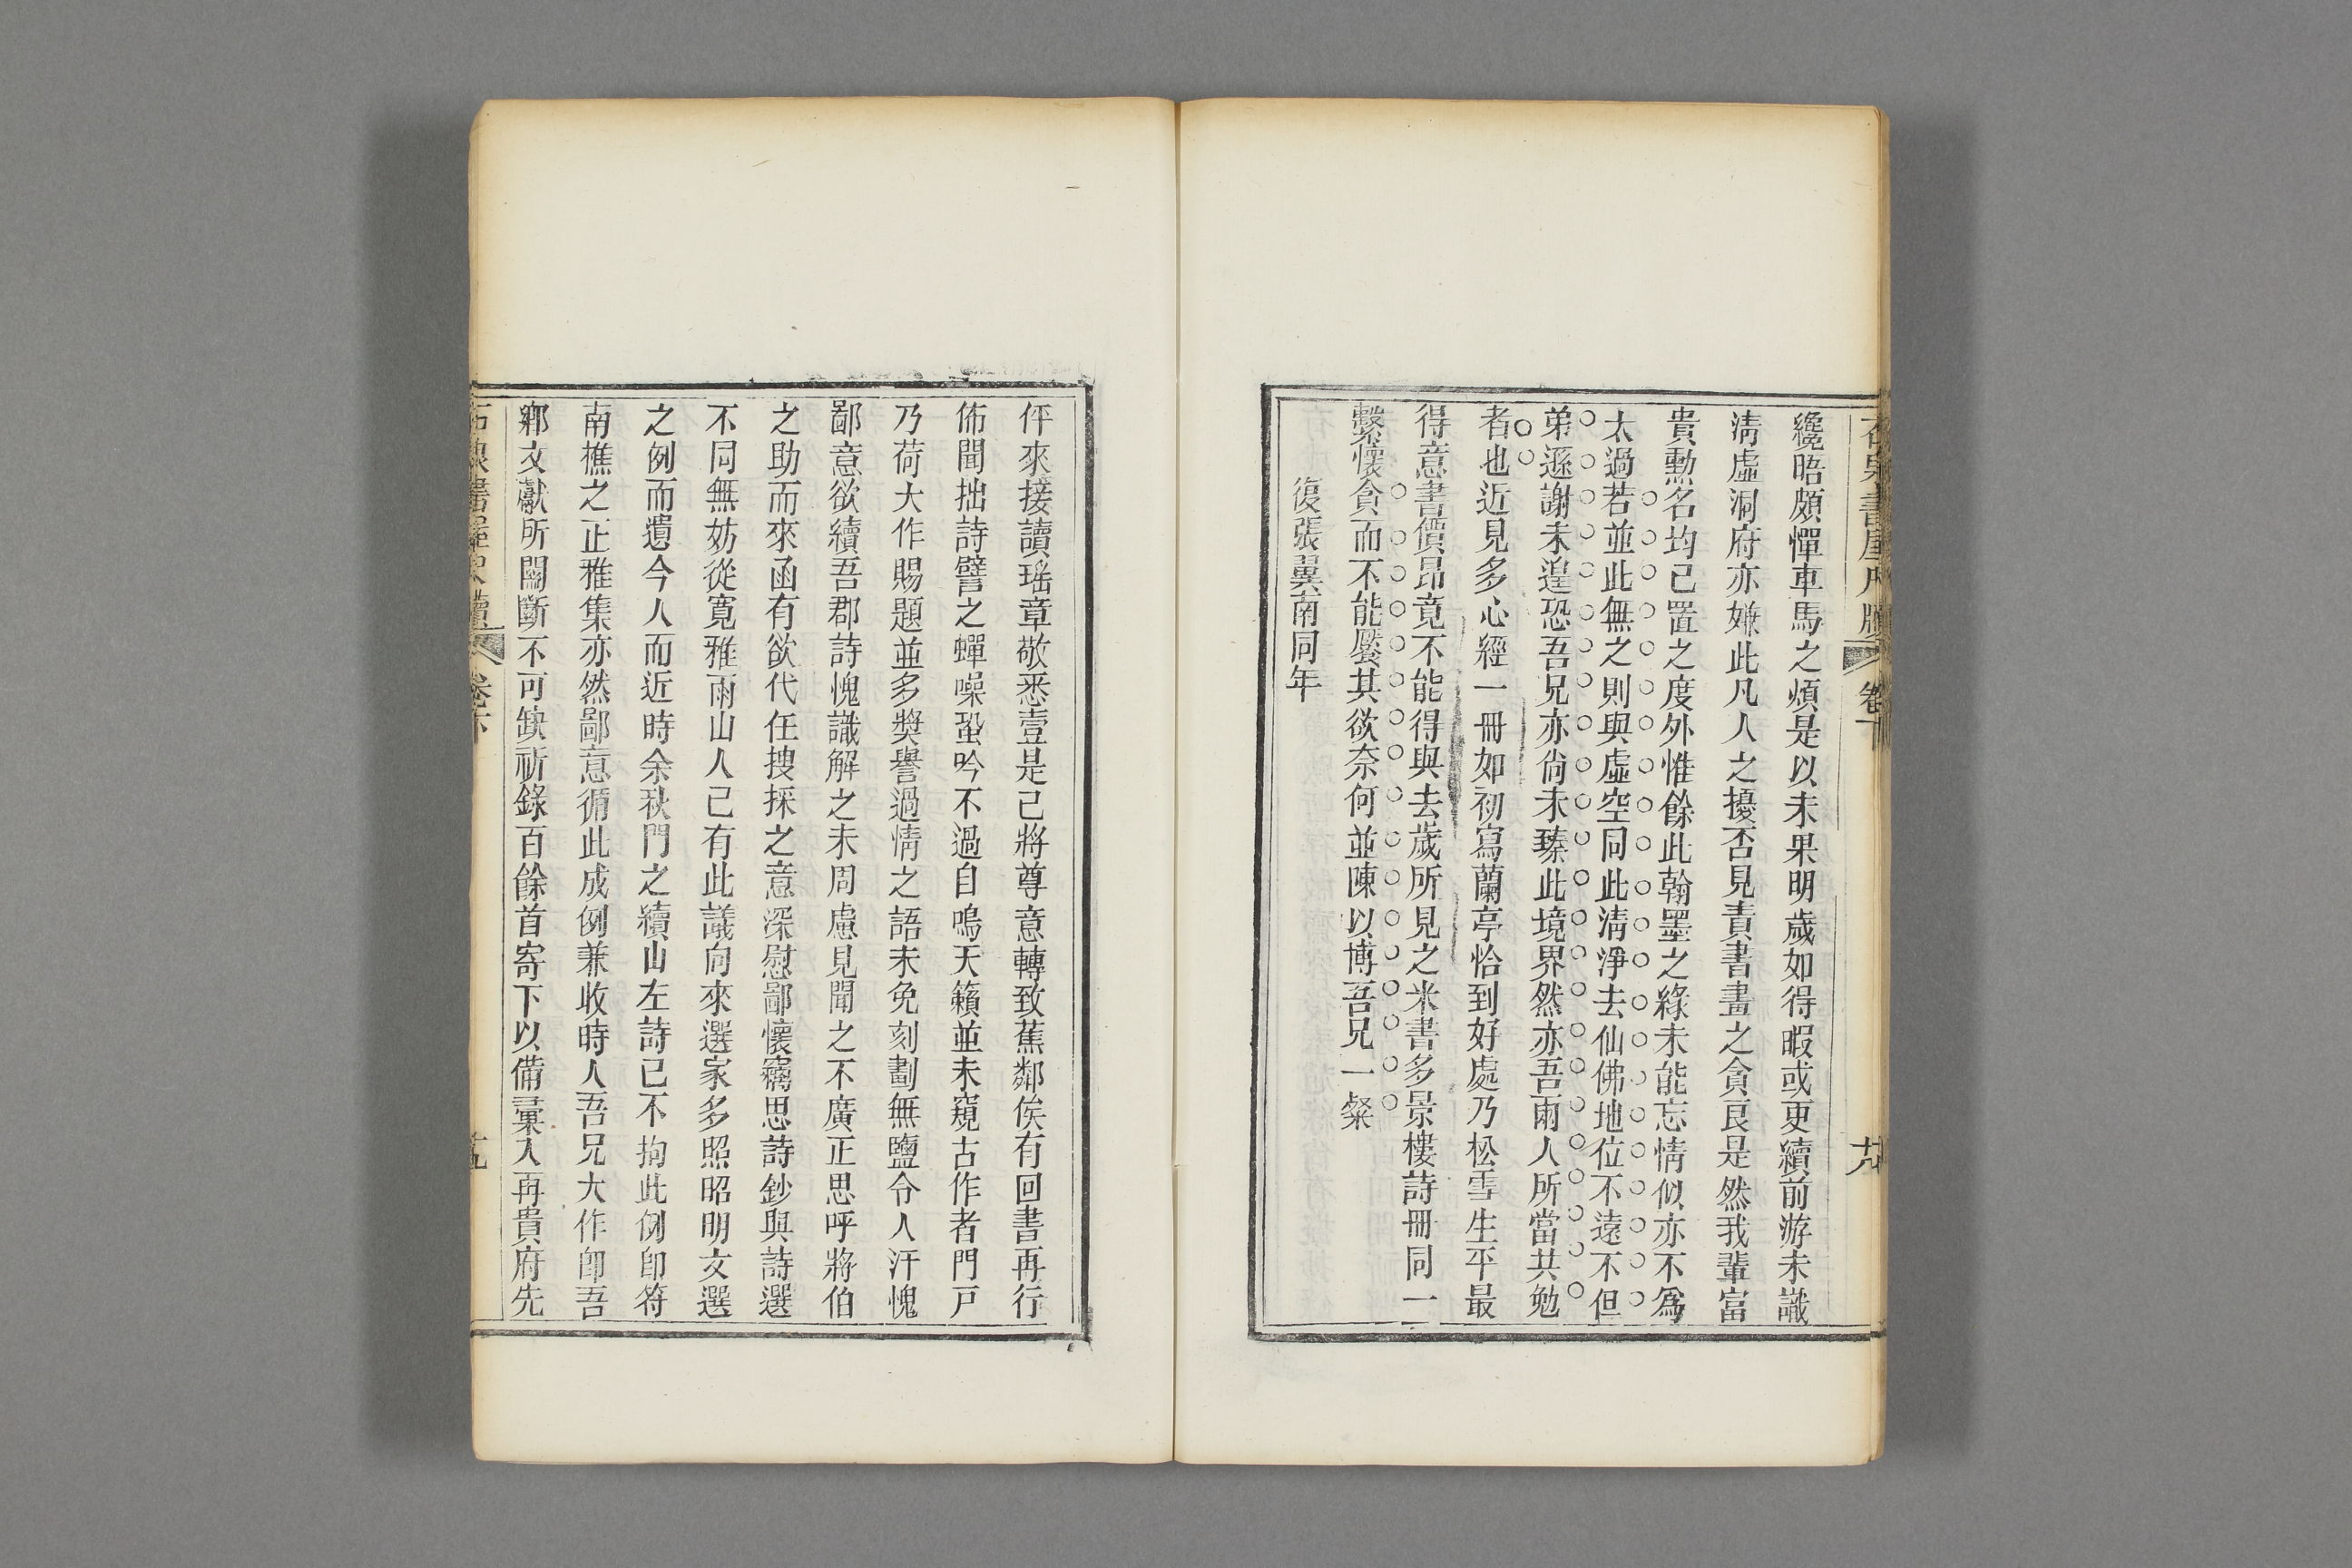 卷下
纔晤頗憚車馬之煩是以未果明歲如得暇或更續前游未識
淸虛洞府亦嫌此凡人之擾否見責書畫之貪良是然我輩富
貴勳名均已置之度外惟餘此翰墨之緣未能忘情似亦不爲
太過若並此無之則與虛空同此淸淨去仙佛地位不遠不但
弟遜謝未遑恐吾兄亦尙未臻此境界然亦吾兩人所當共勉
者也近見多心經一冊如初寫蘭亭恰到好處乃松雪生平最
得意書價昂竟不能得與去歲所見之米書多景樓詩冊同一
繫懷貪而不能饜其欲奈何並陳以博吾兄一粲
復張翼南同年
伻來接讀瑤章敬悉壹是已將尊意轉致蕉鄰俟有回書再行
佈聞拙詩譬之蟬噪蛩吟不過自鳴天籟並未窺古作者門戸
乃荷大作賜題並多奬譽過情之語未免刻劃無鹽令人汗愧
鄙意欲續吾郡詩愧識解之未周慮見聞之不廣正思呼將伯
之助而來函有欲代任搜採之意深慰鄙懷竊思詩鈔與詩選
不同無妨從寬雅雨山人已有此議向來選家多照昭明文選
之例而遺今人而近時余秋門之續山左詩已不拘此例卽符
南樵之正雅集亦然鄙意循此成例兼收時人吾兄大作卽吾
鄕文獻所關斷不可缺祈錄百餘首寄下以備彙入再貴府先
卷下